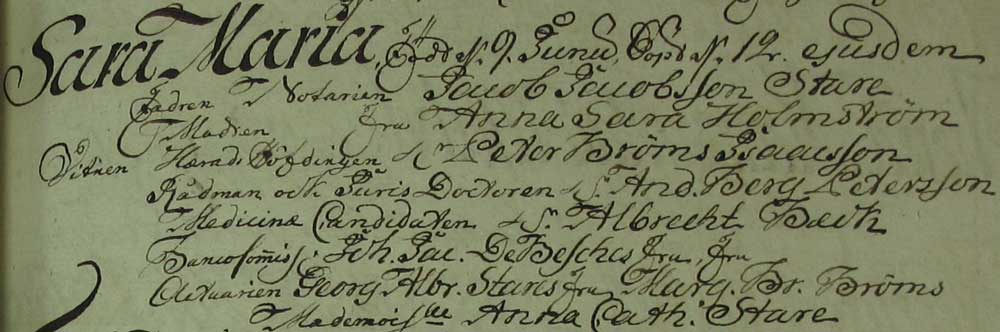 Sara Maria, Född d. 9. Junii, Döpt d. 12. ejusdem
Fadren Notarien Jacob Jacobsson Stare
Madren fru Anna Sara Holmström
Vitnen Härads Höfdingen Hr Peter Bröms Isaacsson
Rådman och Juris-Doctoren Hr And. Berg Petersson
Medicinæ Candidaten Hr Albrecht Bæck
Joh. Jac. De Besches fru, fru
Actuarien Georg Albr. Stares fru Marg. Br. Bröms
Mademoiselle Anna Cath. Stare